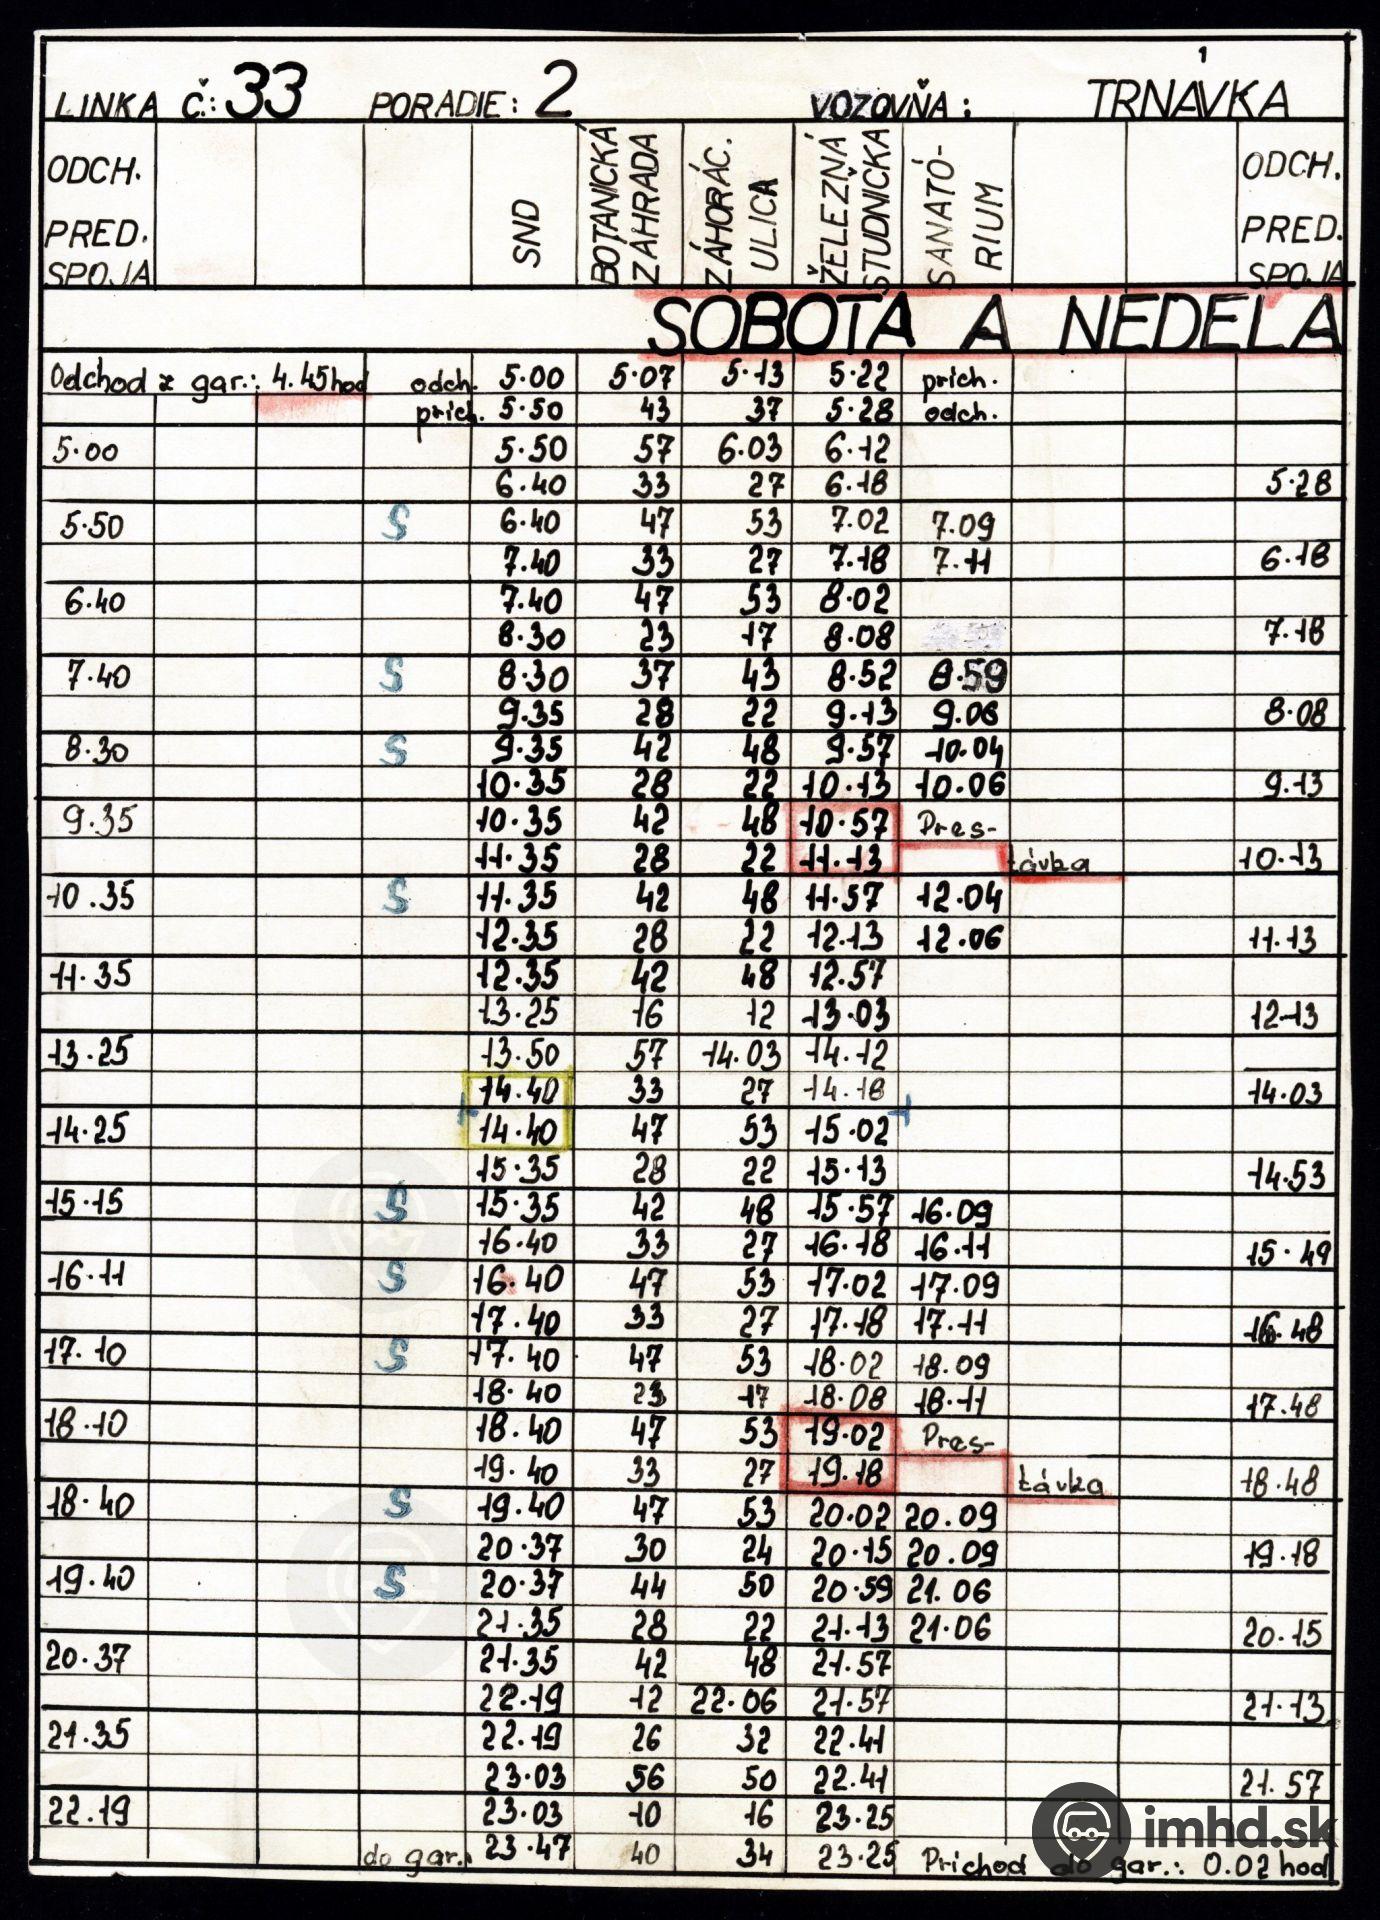 LINKA Č.: 33 PORADIE: 2 VOZOVŇA: TRNÁVKA
ODCH. PRED. SPOJA SND BOTANICKÁ ZÁHRADA ZÁHORÁC. ULICA ŽELEZNÁ STUDNIČKA SANATÓ-RIUM ODCH. PRED. SPOJA
SOBOTA A NEDEĽA
Odchod z gar.: 4.45 hod odch. 5.00 5.07 5.13 5.22 prích.
prích. 5.50 43 37 5.28 odch.
5.00 5.50 57 6.03 6.12
6.40 33 27 6.18 5.28
5.50 S 6.40 47 53 7.02 7.09
7.40 33 27 7.18 7.11 6.18
6.40 7.40 47 53 8.02
8.30 23 17 8.08 7.18
7.40 S 8.30 37 43 8.52 8.59
9.35 28 22 9.13 9.06 8.08
8.30 S 9.35 42 48 9.57 10.04
10.35 28 22 10.13 10.06 9.13
9.35 10.35 42 48 10.57 Pres-
11.35 28 22 11.13 távka 10.13
10.35 S 11.35 42 48 11.57 12.04
12.35 28 22 12.13 12.06 11.13
11.35 12.35 42 48 12.57
13.25 16 12 13.03 12.13
13.25 13.50 57 14.03 14.12
14.40 33 27 14.18 14.03
14.25 14.40 47 53 15.02
15.35 28 22 15.13 14.53
15.15 S 15.35 42 48 15.57 16.09
16.40 33 27 16.18 16.11 15.49
16.11 S 16.40 47 53 17.02 17.09
17.40 33 27 17.18 17.11 16.48
17.10 S 17.40 47 53 18.02 18.09
18.40 23 17 18.08 18.11 17.48
18.10 18.40 47 53 19.02 Pres-
19.40 33 27 19.18 távka 18.48
18.40 S 19.40 47 53 20.02 20.09
20.37 30 24 20.15 20.09 19.18
19.40 S 20.37 44 50 20.59 21.06
21.35 28 22 21.13 21.06 20.15
20.37 21.35 42 48 21.57
22.19 12 22.06 21.57 21.13
21.35 22.19 26 32 22.41
23.03 56 50 22.41 21.57
22.19 23.03 10 16 23.25
do gar. 23.47 40 34 23.25 Príchod do gar.: 0.02 hod
imhd.sk